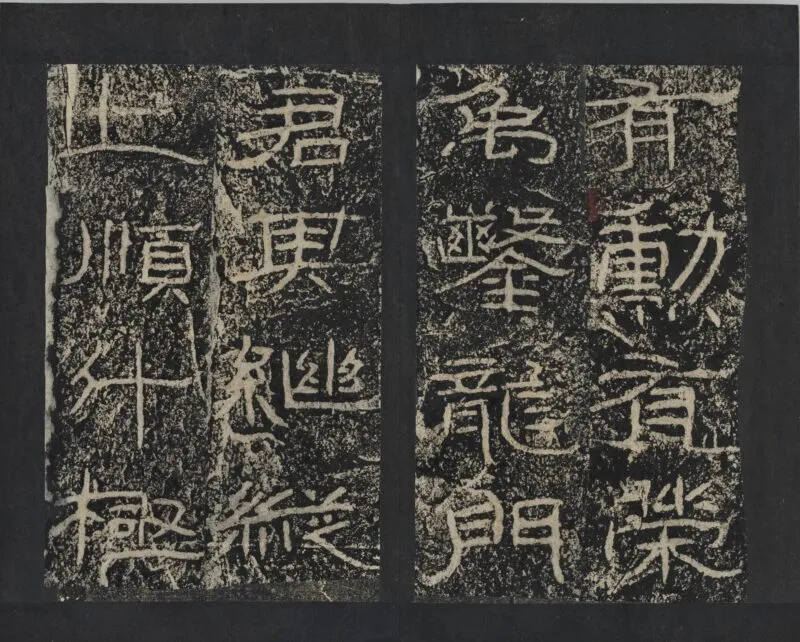 有勳有榮
禹鑿龍門
君其繼縱
上順斗極